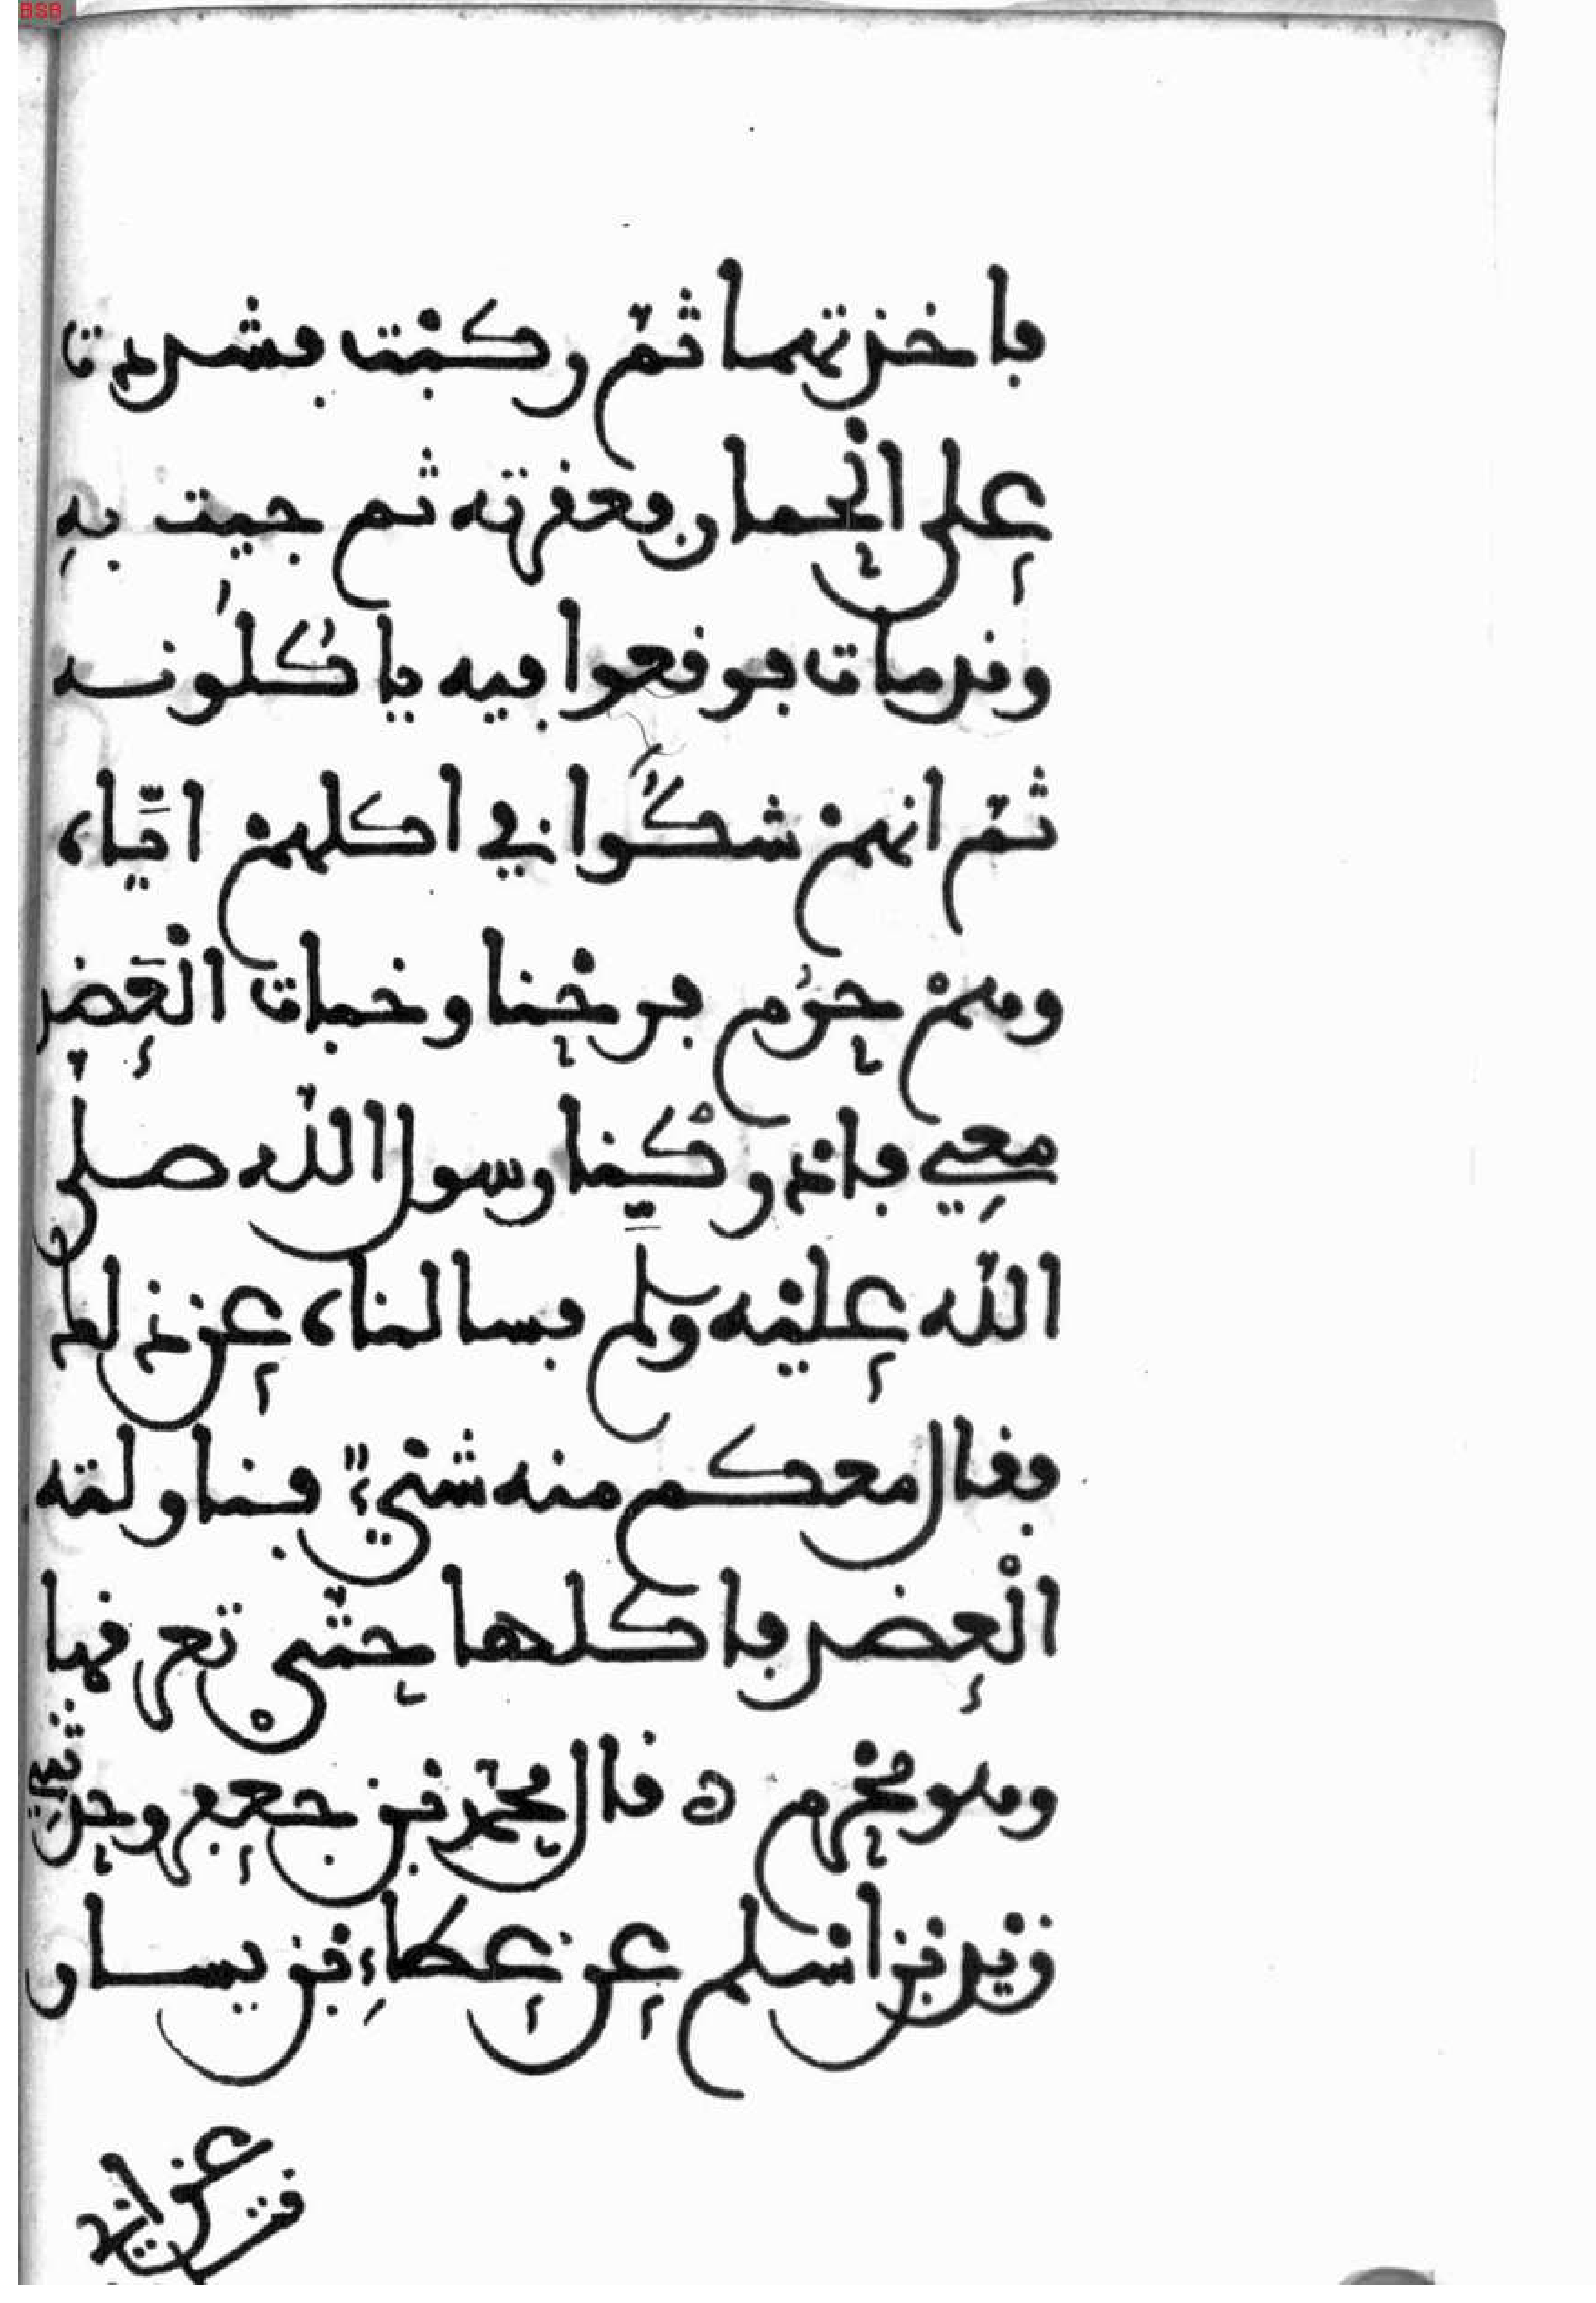 BSB
فاخذتهما ثمّ ركبْت فشددت
على الْحمار فعقرته ثم جيت به
وقد مات فوقعوا فيه ياكُلونـه
ثمّ انهمْ شكُّوا في اكلهمْ ايّاه
وهمْ حرُم فرحْنا وخبات الْعَضد
معي فادركْنا رسول اللّه صلى
اللّه عليْه وسلم فسالناه عن ذلك
فقال معكم منه شيْءٌ فناولته
الْعضد فاكلها حتّى تعرقها
وهو محْرم ه قال محمّد بن جعفر وحدّثني
زيْد بن اسْلم عن عطاءِ بن يسـار
عن ابي
قتادة